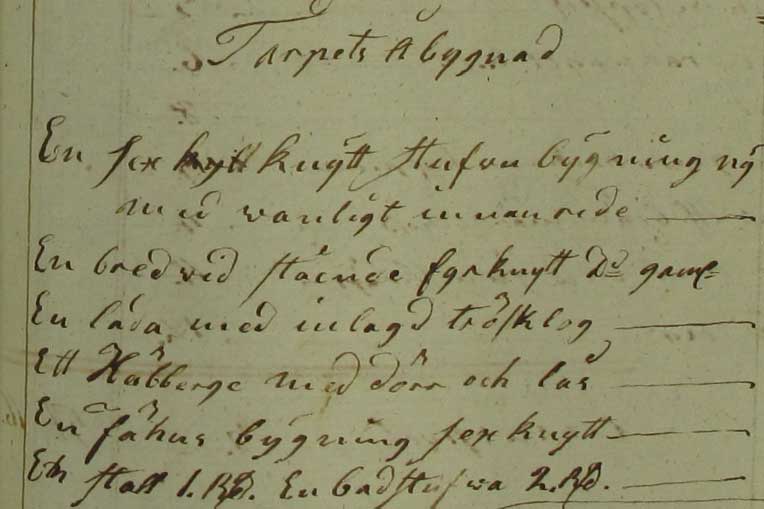 Torpets Åbygnad
En sex knÿtt stufvu bÿgning nÿ
med wanligt innanrede
En bredvid stående fyrknytt Do gaml
En låda med inlagd trösklog
Ett Häbberge med dörr och lås
En fähus bÿgning sexknytt
Ett stall 1. Rd. En badstufwa 2. Rd.